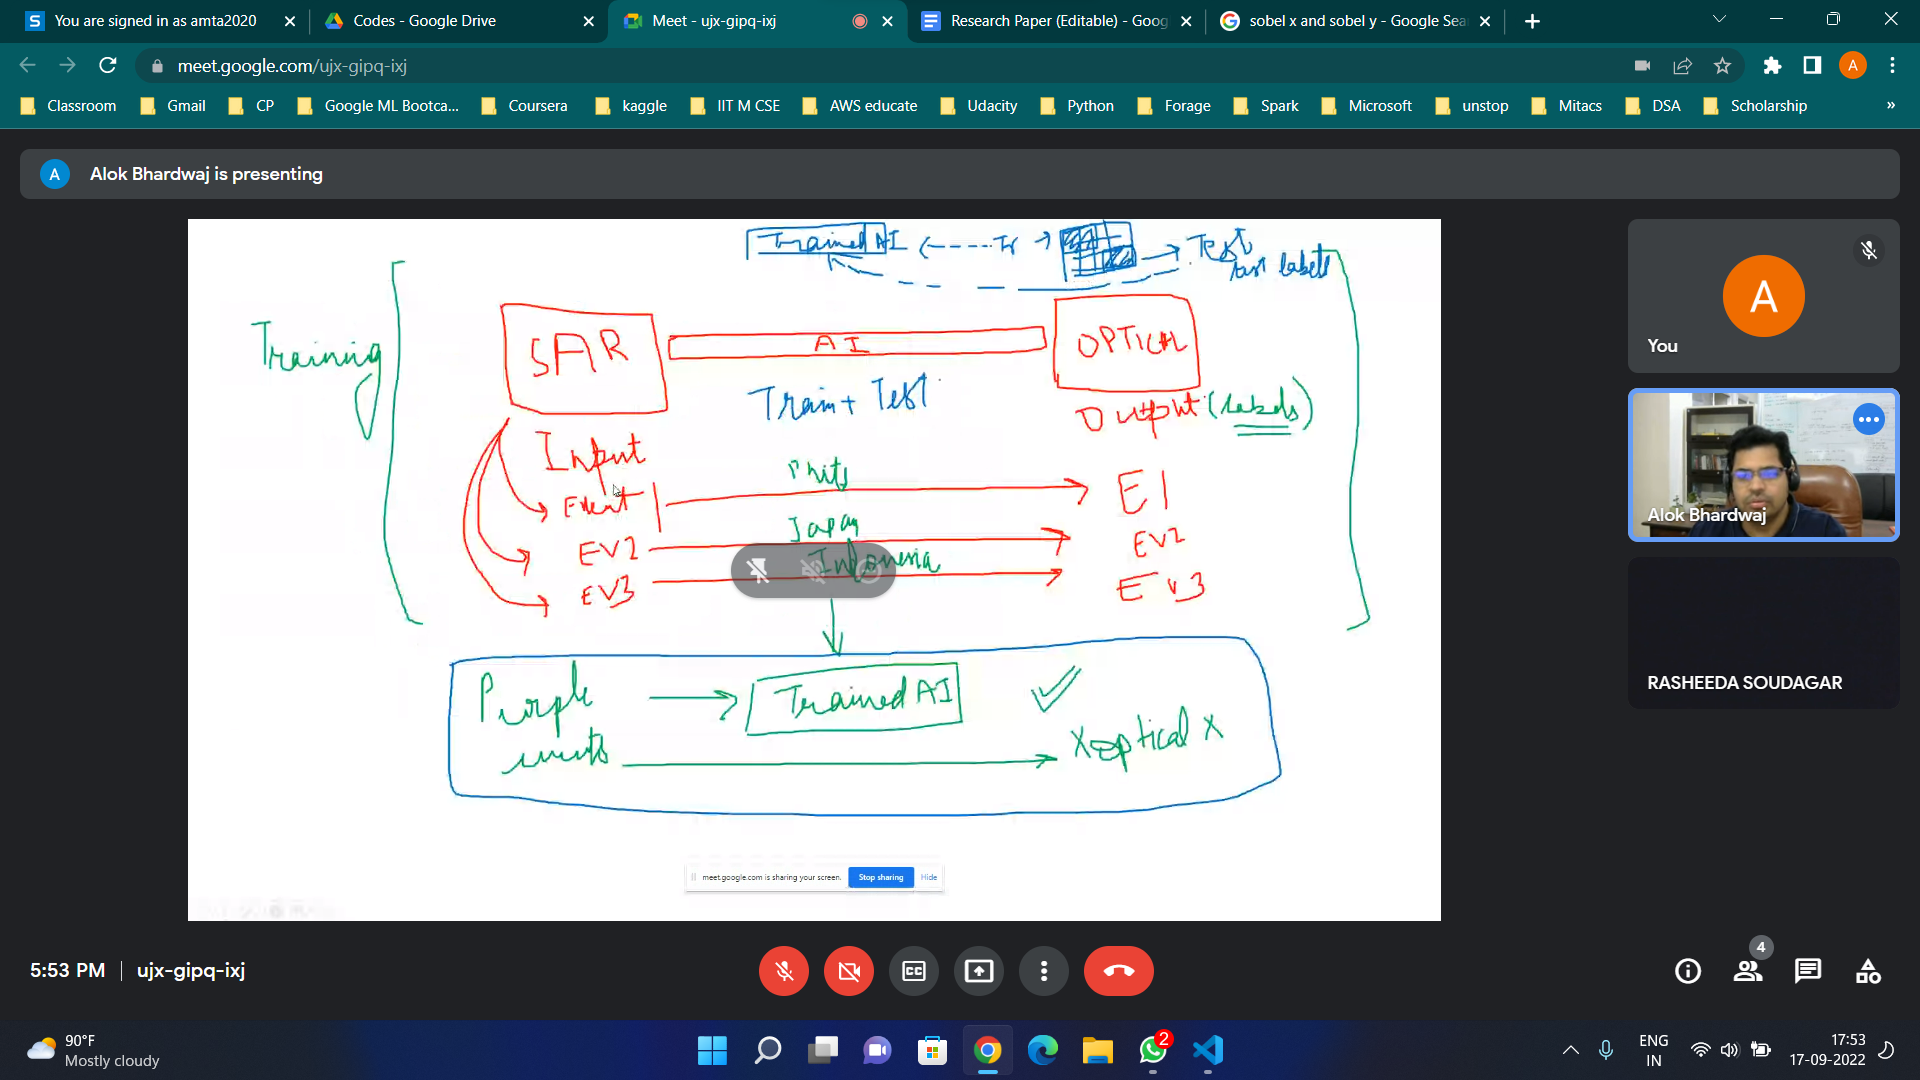 You are signed in as amta2020
Codes - Google Drive
Meet - ujx-gipq-ixj
Research Paper (Editable) - Goog
sobel x and sobel y - Google Sea
meet.google.com/ujx-gipq-ixj
Classroom Gmail CP Google ML Bootca... Coursera kaggle IIT M CSE AWS educate Udacity Python Forage Spark Microsoft unstop Mitacs DSA Scholarship »
A Alok Bhardwaj is presenting
Trained AI Tr Test
labels
Training
SAR AI OPTICAL
Train + Test
Output (labels)
Input
Event E1
Japan
EV2 EV2
Indonesia
EV3 EV3
Purple Trained AI
events X optical X
meet.google.com is sharing your screen. Stop sharing Hide
A
You
Alok Bhardwaj
RASHEEDA SOUDAGAR
5:53 PM | ujx-gipq-ixj
CC
4
90°F
Mostly cloudy
2
ENG
IN
17:53
17-09-2022